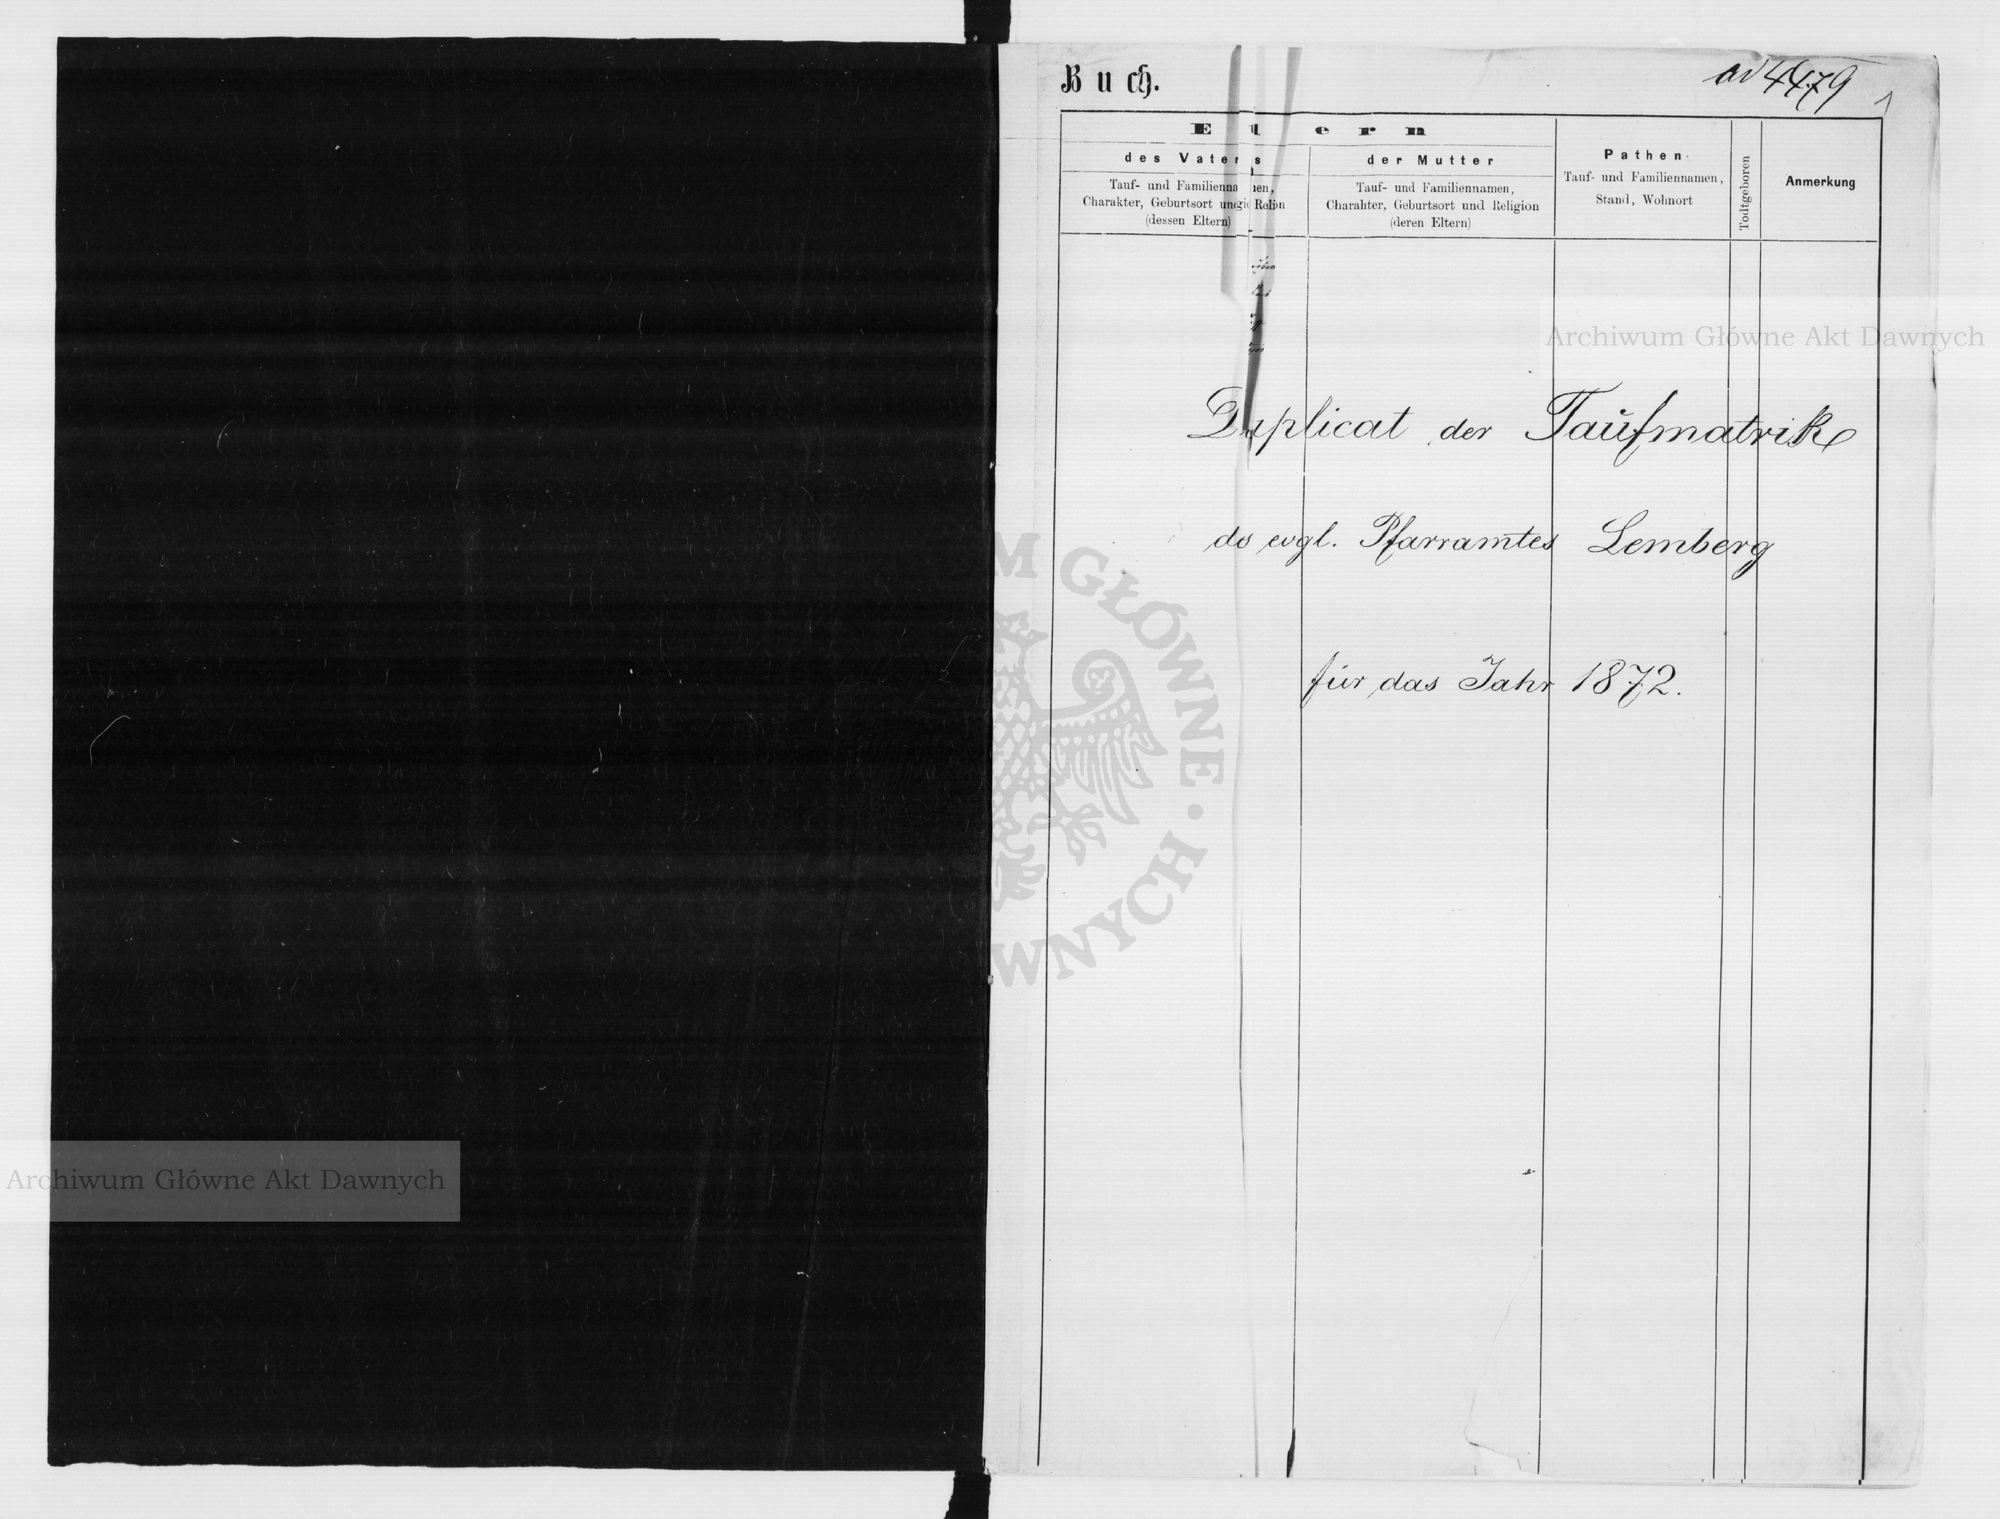 Buch.
ad 4479
1
Eltern
des Vaters
der Mutter
Pathen
Todtgeboren
Anmerkung
Tauf- und Familiennamen,
Charakter, Geburtsort und Religion
(dessen Eltern)
Tauf- und Familiennamen,
Charahter, Geburtsort und Religion
(deren Eltern)
Tauf- und Familiennamen,
Stand, Wohnort
Archiwum Główne Akt Dawnych
Duplicat der Taŭfmatrik
ds evgl. Pfarramtes Lemberg
für das Jahr 1872.
M GŁÓWNE · WNYCH
Archiwum Główne Akt Dawnych